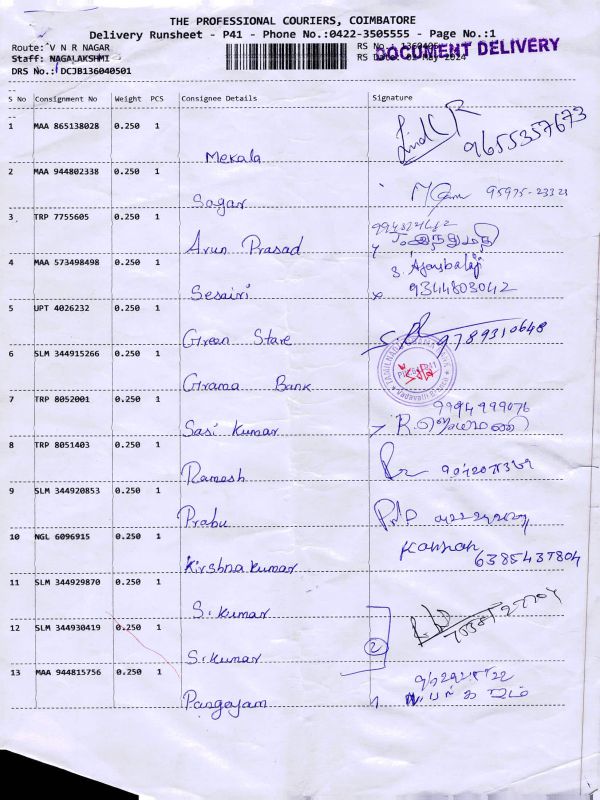 THE PROFESSIONAL COURIERS, COIMBATORE
Delivery Runsheet - P41 - Phone No.:0422-3505555 - Page No.:1
Route: V N R NAGAR RS No.: 1360405
DOCUMENT DELIVERY
Staff: NAGALAKSHMI RS Date: 01-May-2024
DRS No.: DCJB136040501
S No Consignment No Weight PCS Consignee Details Signature
1 MAA 865138028 0.250 1
Mekala 9655357673
2 MAA 944802338 0.250 1
Sagar 95975-23323
3 TRP 7755605 0.250 1
Arun Prasad
4 MAA 573498498 0.250 1 S. Ajaybalaji
Sesairi 9344803042
5 UPT 4026232 0.250 1
Green Stare 9789310648
6 SLM 344915266 0.250 1
Grama Bank
7 TRP 8052001 0.250 1 9994999076
Sasi Kumar
8 TRP 8051403 0.250 1
Ramesh
9 SLM 344920853 0.250 1
Prabu
10 NGL 6096915 0.250 1 Kannan
Kirshna kumar 6385437804
11 SLM 344929870 0.250 1
S. kumar
12 SLM 344930419 0.250 1 2
S. kumar
13 MAA 944815756 0.250 1
Pangajam